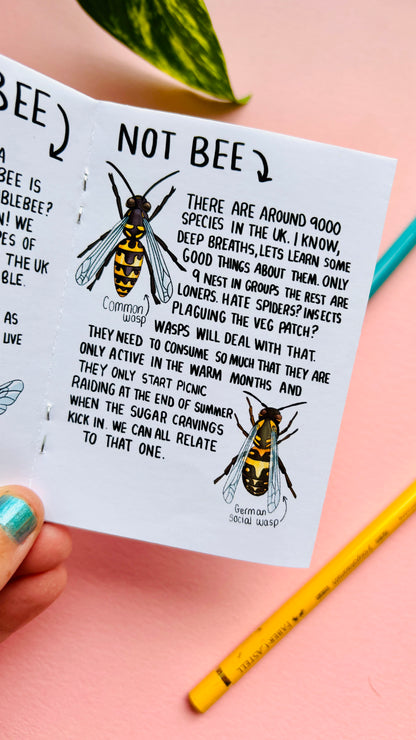 BEE
A
BEE IS
BLEBEE?
N! WE
PES OF
THE UK
BLE.
AS
LIVE
NOT BEE
THERE ARE AROUND 9000
SPECIES IN THE UK. I KNOW,
DEEP BREATHS, LETS LEARN SOME
GOOD THINGS ABOUT THEM. ONLY
9 NEST IN GROUPS THE REST ARE
LONERS. HATE SPIDERS? INSECTS
PLAGUING THE VEG PATCH?
WASPS WILL DEAL WITH THAT.
Common
wasp
THEY NEED TO CONSUME SO MUCH THAT THEY ARE
ONLY ACTIVE IN THE WARM MONTHS AND
THEY ONLY START PICNIC
RAIDING AT THE END OF SUMMER
WHEN THE SUGAR CRAVINGS
KICK IN. WE CAN ALL RELATE
TO THAT ONE.
German
social wasp
FABER-CASTELL